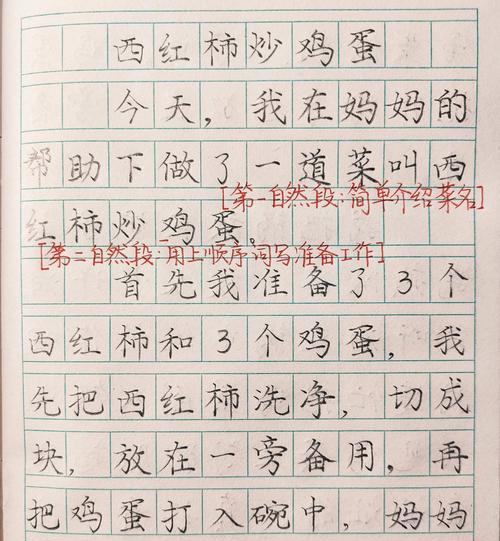 西红柿炒鸡蛋
今天，我在妈妈的
帮助下做了一道菜叫西
[第一自然段：简单介绍菜名]
红柿炒鸡蛋。
[第二自然段：用上顺序词写准备工作]
首先我准备了3个
西红柿和3个鸡蛋，我
先把西红柿洗净，切成
块，放在一旁备用，再
把鸡蛋打入碗中，妈妈